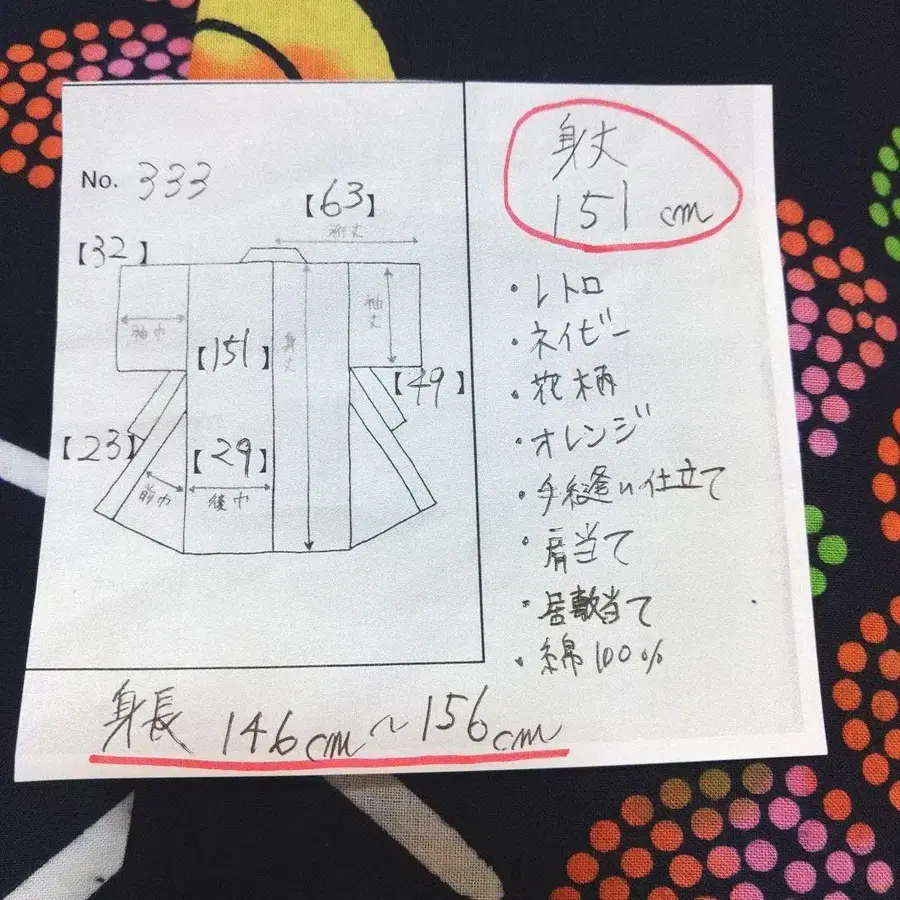 No. 333
【63】
裄丈
【32】
袖巾
袖丈
【151】
身丈
【49】
【23】
【29】
前巾
後巾
身丈
151 cm
・レトロ
・ネイビー
・花柄
・オレンジ
・手縫い仕立て
・肩当て
・居敷当て
・綿100%
身長 146cm~156cm